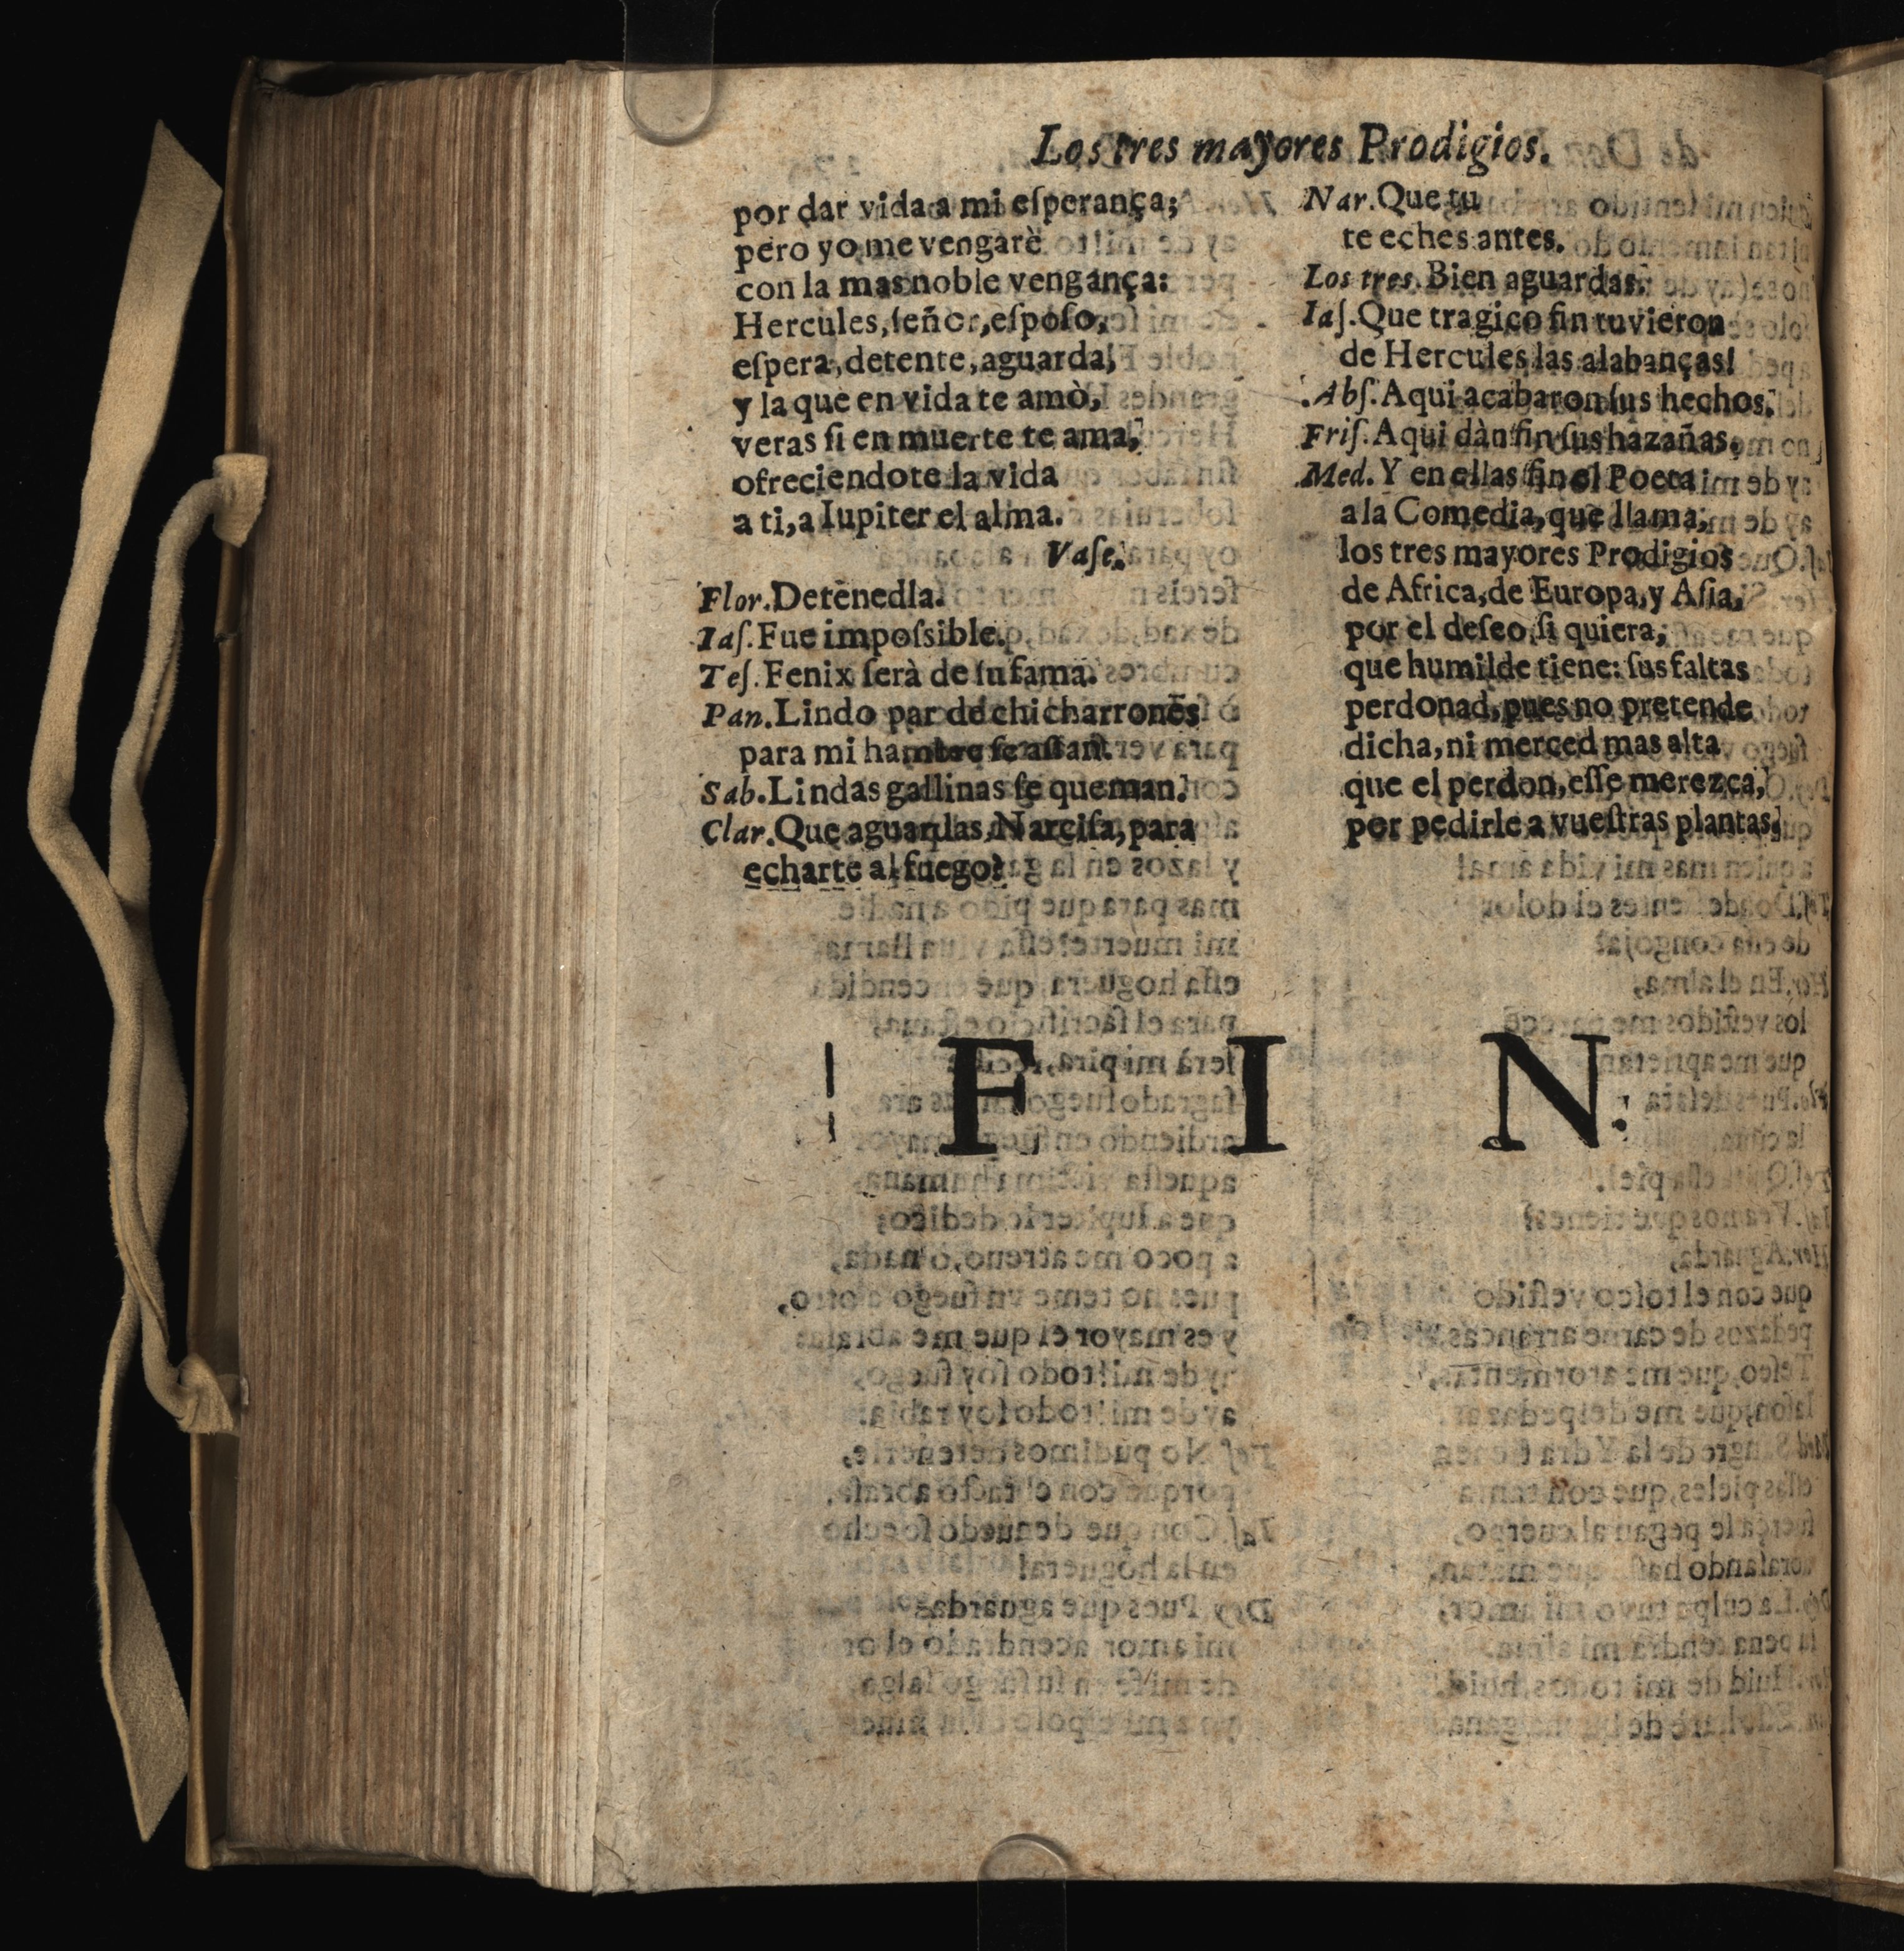 Los tres mayores Prodigios.
por dar vida a mi eſperança;
pero yo me vengarè
con la mas noble vengança:
Hercules, ſeñor, eſpoſo,
eſpera, detente, aguarda,
y la que en vida te amò,
veras ſi en muerte te ama,
ofreciendote la vida
a ti, a Iupiter el alma.
Vaſe.
Flor. Detēnedla.
Iaſ. Fue impoſsible.
Teſ. Fenix ſerà de ſu fama.
Pan. Lindo par de chicharronēs
para mi hambre ſe aſſan.
Sab. Lindas gallinas ſe queman.
Clar. Que aguardas, Narciſa, para
echarte al fuego?
Nar. Que tu
te eches antes.
Los tres. Bien aguardas.
Iaſ. Que tragico fin tuvieron
de Hercules las alabanças!
Abſ. Aqui acabaron ſus hechos.
Friſ. Aqui dàn fin ſus hazañas.
Med. Y en ellas fin el Poeta
a la Comedia, que llama,
los tres mayores Prodigios
de Africa, de Europa, y Aſia,
por el deſeo ſi quiera,
que humilde tiene: ſus faltas
perdonad, pues no pretende
dicha, ni merced mas alta
que el perdon, eſſe merezca,
por pedirle a vueſtras plantas.
F I N.